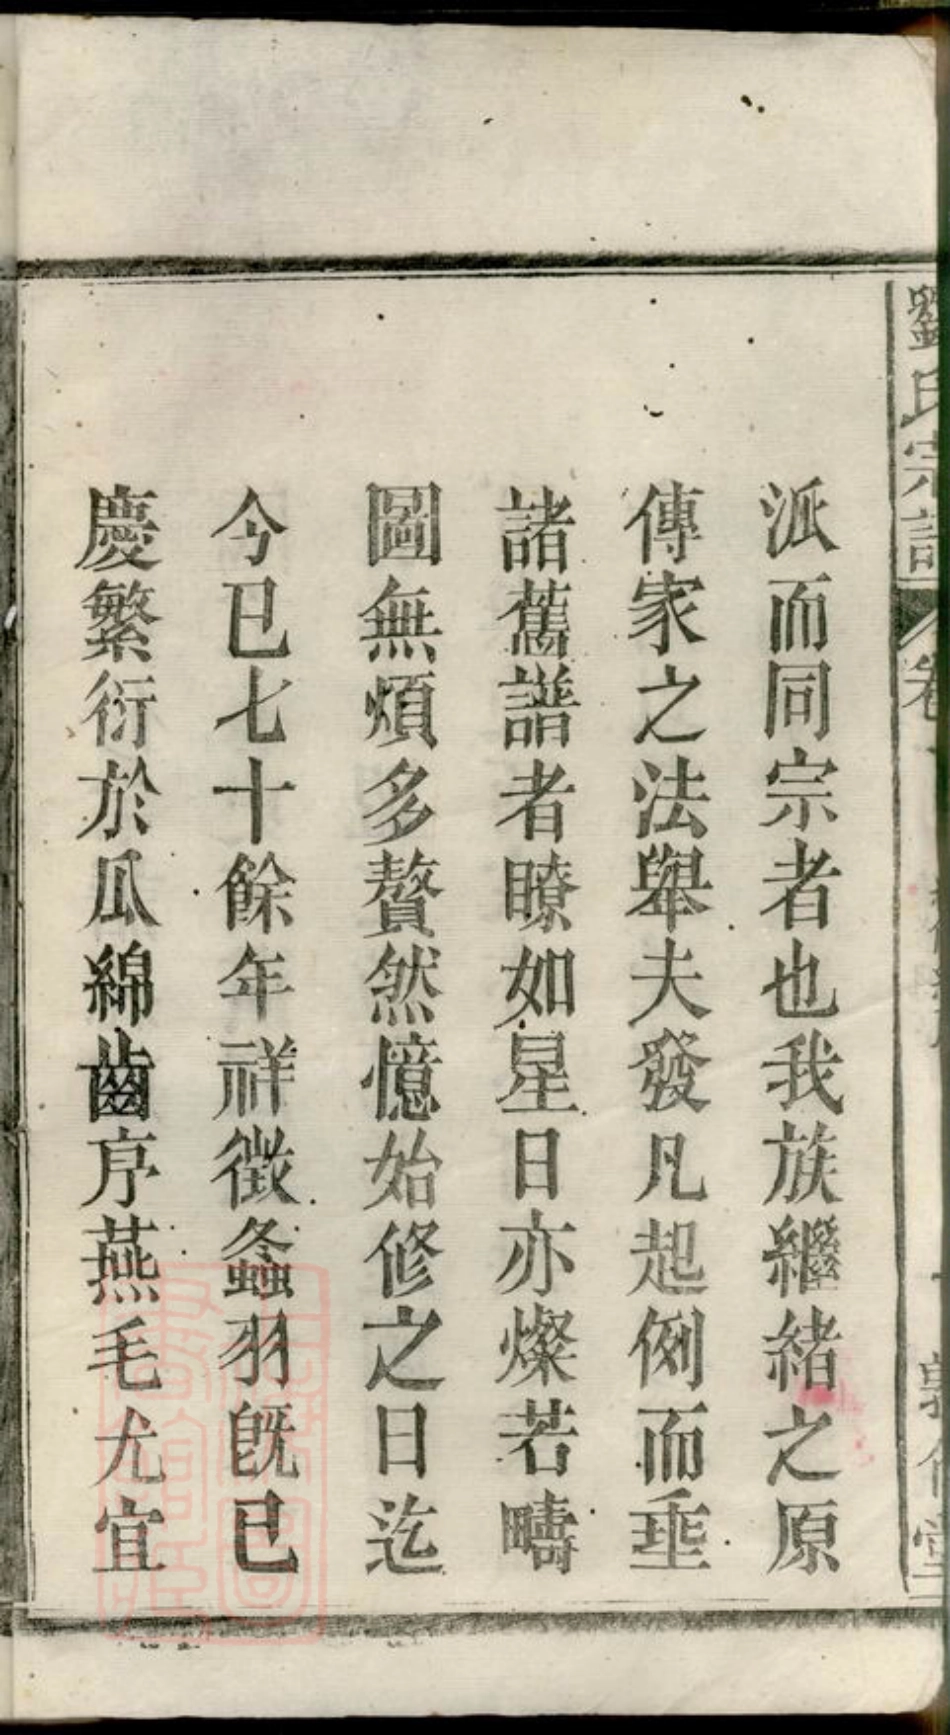 劉氏宗譜
卷
派而同宗者也我族繼緒之原
傳家之法舉夫發凡起例而垂
諸舊譜者瞭如星日亦燦若疇
圖無煩多贅然憶始修之日迄
今已七十餘年祥徵螽羽旣已
慶繁衍於瓜綿齒序燕毛尤宜